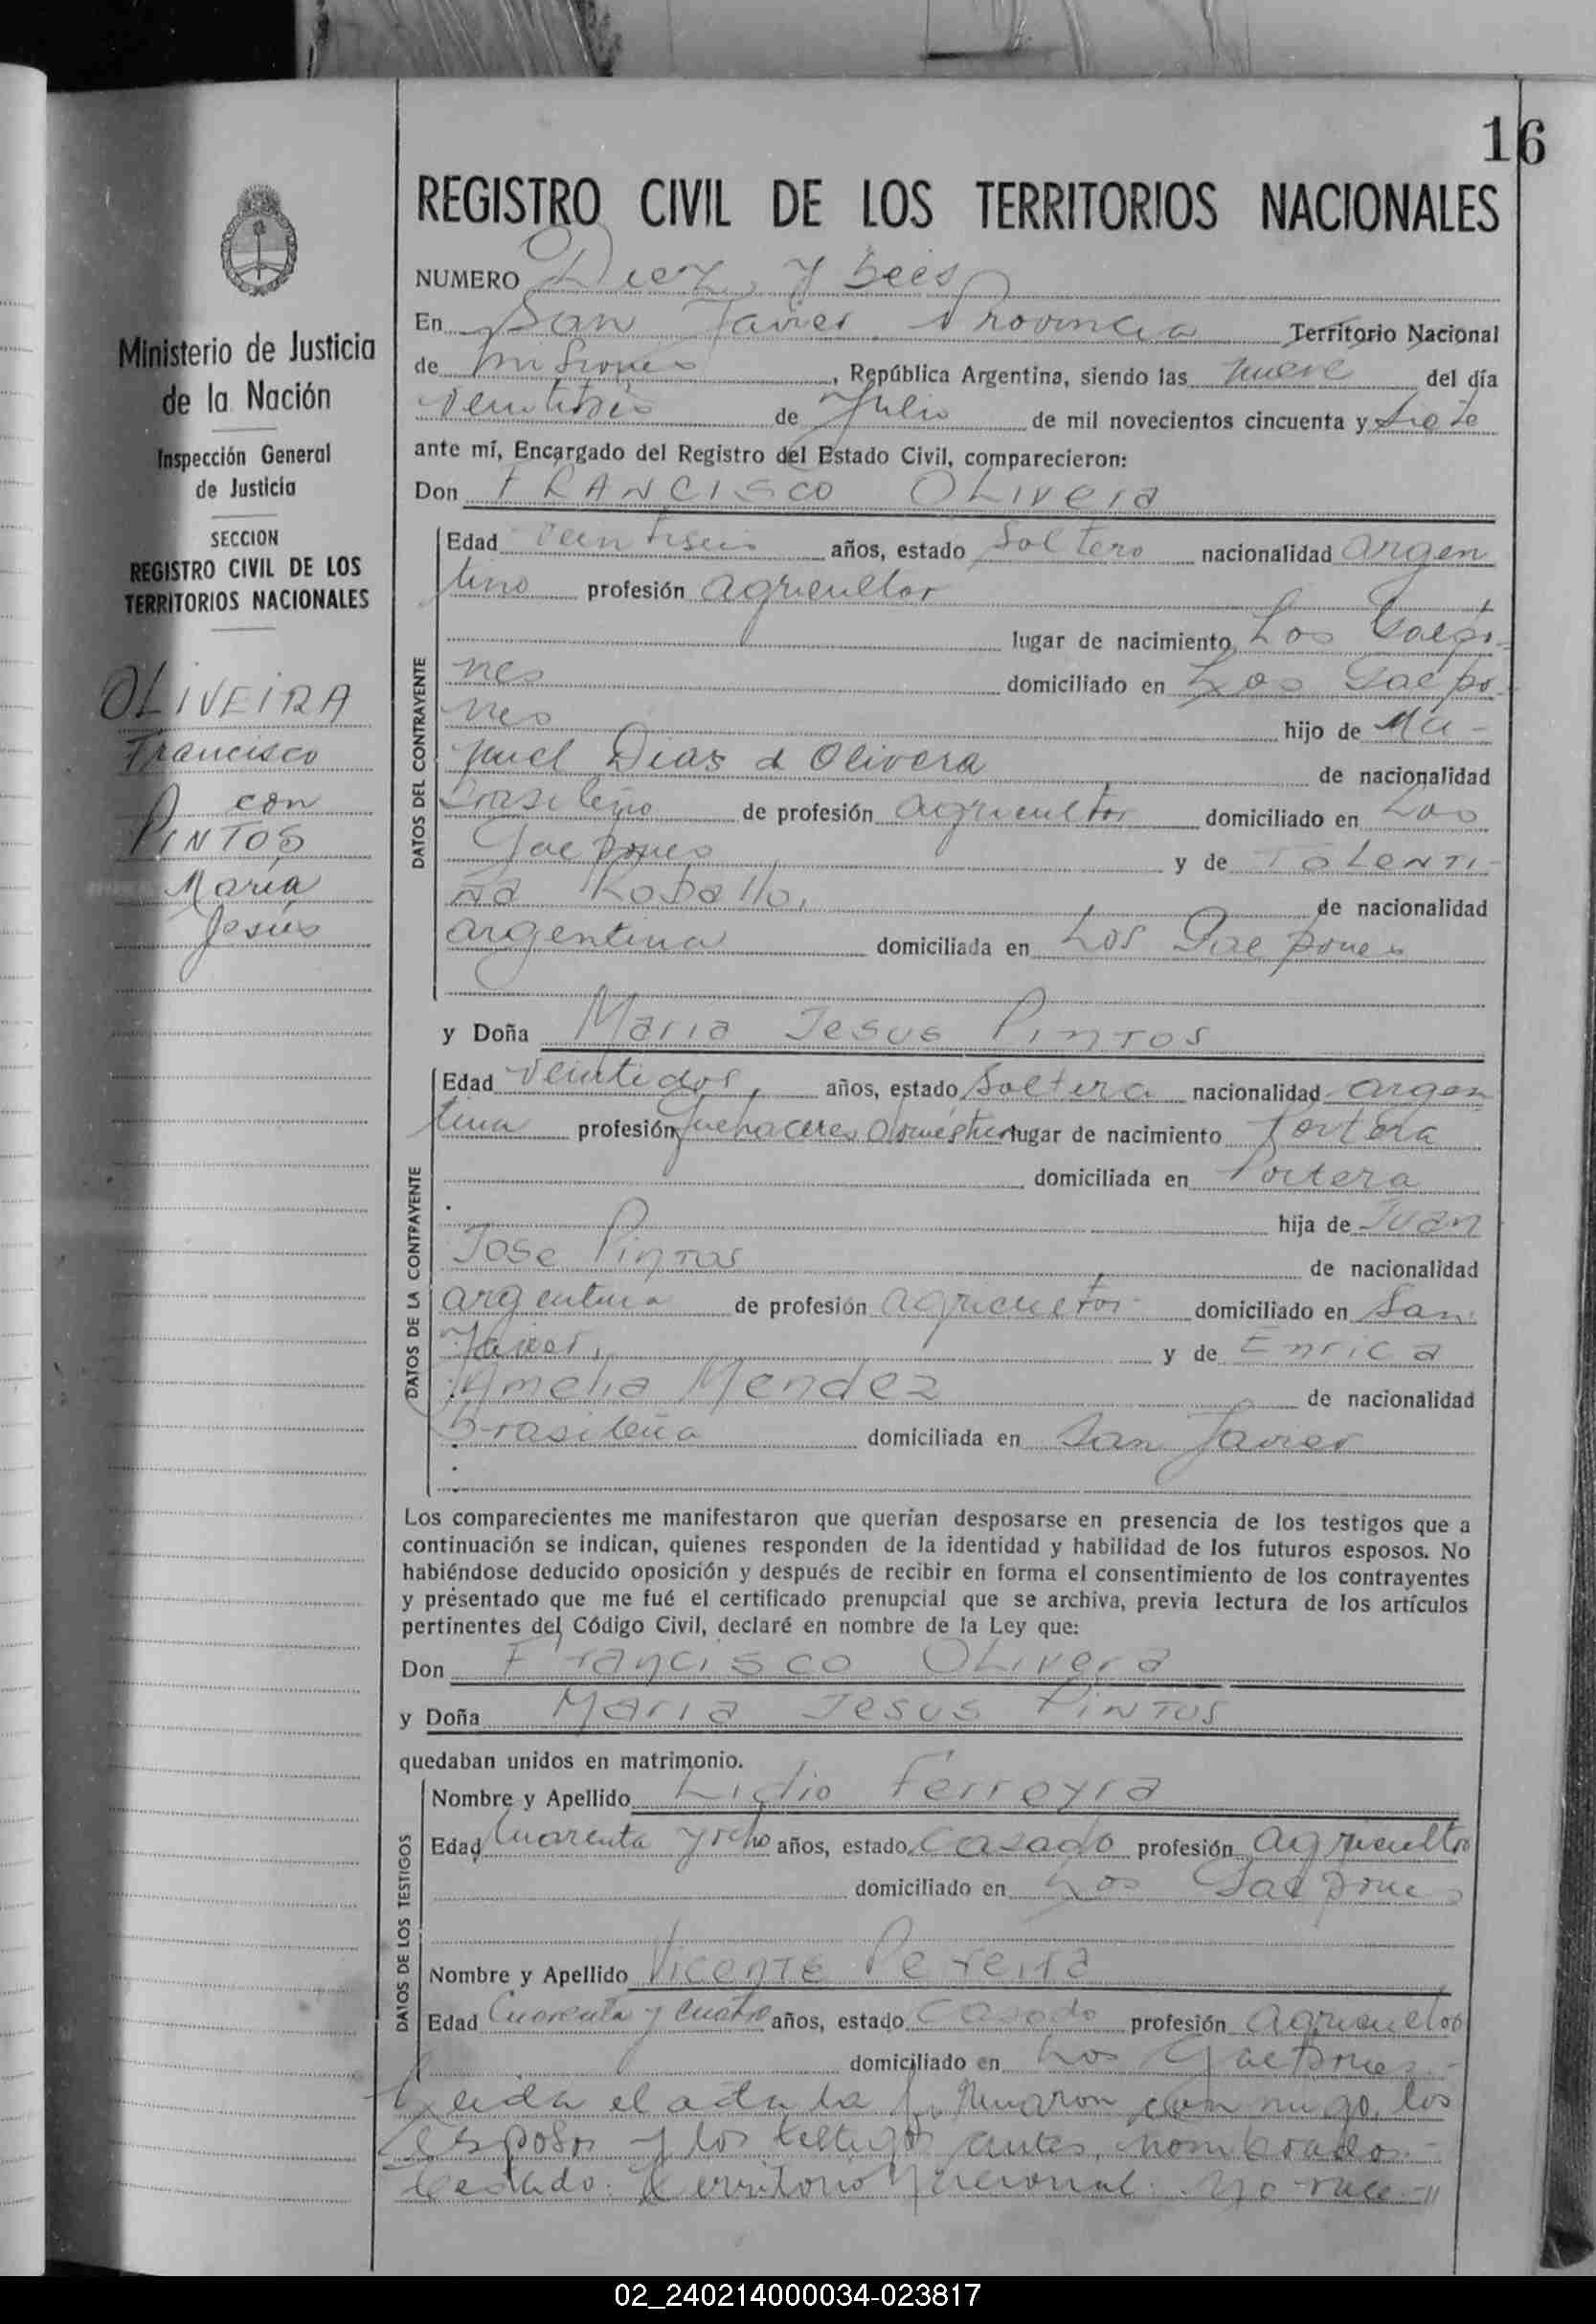 16
REGISTRO CIVIL DE LOS TERRITORIOS NACIONALES
NUMERO Diez y Seis
En San Javier Provincia Territorio Nacional
de Misiones, República Argentina, siendo las nueve del día
de Julio de mil novecientos cincuenta y siete
ante mí, Encargado del Registro del Estado Civil, comparecieron:
Don FRANCISCO OLivera
Edad veintiseis años, estado Soltero nacionalidad argen
tino profesión agricultor
lugar de nacimiento Los Galpo-
nes domiciliado en Los Galpo-
nes hijo de Ma-
nuel Dias d Olivera de nacionalidad
brasileño de profesión agricultor domiciliado en Los
Galpones y de TOLENTI-
NA Roballo, de nacionalidad
argentina domiciliada en Los Galpones
y Doña Maria Jesus Pintos
Edad veintidos, años, estado Soltera nacionalidad argen
tina profesión quehaceres domésticos lugar de nacimiento Portera
domiciliada en Portera
hija de Juan
Jose Pintos de nacionalidad
argentina de profesión agricultor domiciliado en San
Javier, y de Enrica
Amelia Mendez de nacionalidad
brasileña domiciliada en San Javier
Los comparecientes me manifestaron que querían desposarse en presencia de los testigos que a
continuación se indican, quienes responden de la identidad y habilidad de los futuros esposos. No
habiéndose deducido oposición y después de recibir en forma el consentimiento de los contrayentes
y presentado que me fué el certificado prenupcial que se archiva, previa lectura de los artículos
pertinentes del Código Civil, declaré en nombre de la Ley que:
Don Francisco OLivera
y Doña Maria Jesus Pintos
quedaban unidos en matrimonio.
Nombre y Apellido Lidio Ferreyra
Edad Cuarenta y ocho años, estado Casado profesión agricultor
domiciliado en Los Galpones
Nombre y Apellido Vicente Pereira
Edad Cuarenta y cuatro años, estado Casado profesión agricultor
domiciliado en Los Galpones.-
Leida el acta la firmaron con migo, los
esposos y los testigos antes nombrados.-
Testado: Territorio Nacional: No vale.-
DATOS DEL CONTRAYENTE
DATOS DE LA CONTRAYENTE
DATOS DE LOS TESTIGOS
Ministerio de Justicia
de la Nación
Inspección General
de Justicia
SECCION
REGISTRO CIVIL DE LOS
TERRITORIOS NACIONALES
OLIVEIRA
Francisco
con
PINTOS
María
Jesús
02_240214000034-023817